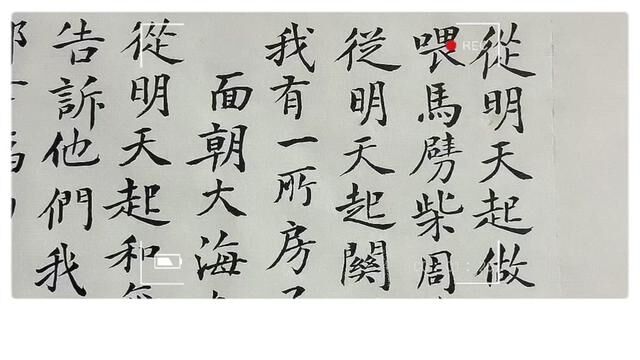 從明天起做
喂馬劈柴周
従明天起關
我有一所房
面朝大海
從明天起和
告訴他們我
REC